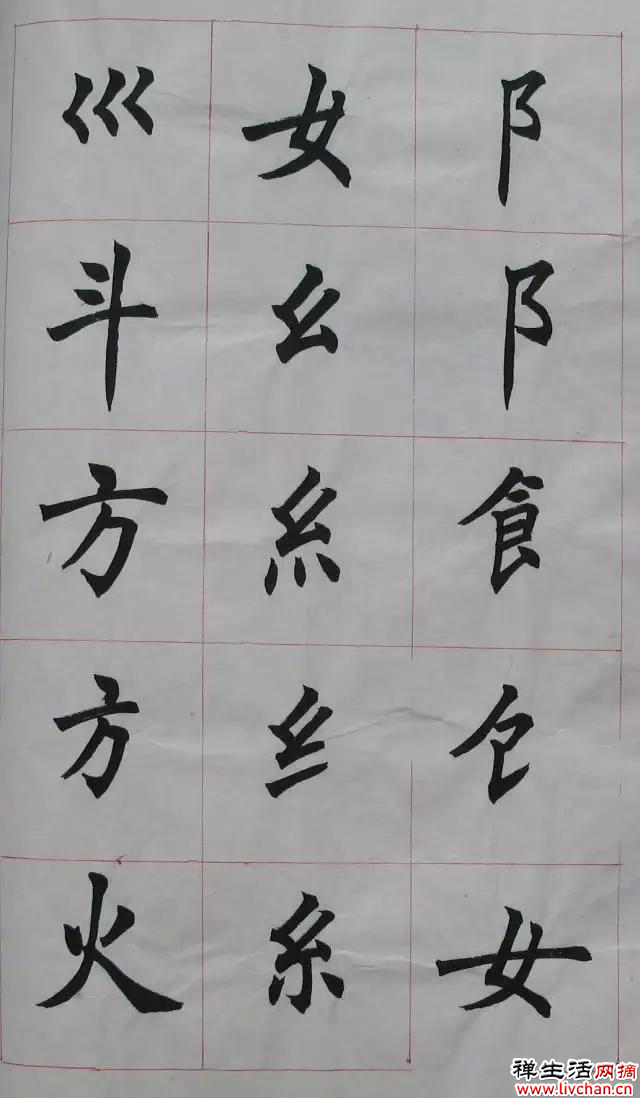 阝阝飠女
女幺糹纟糸
巛斗方方火
禅生活网摘
www.livchan.cn